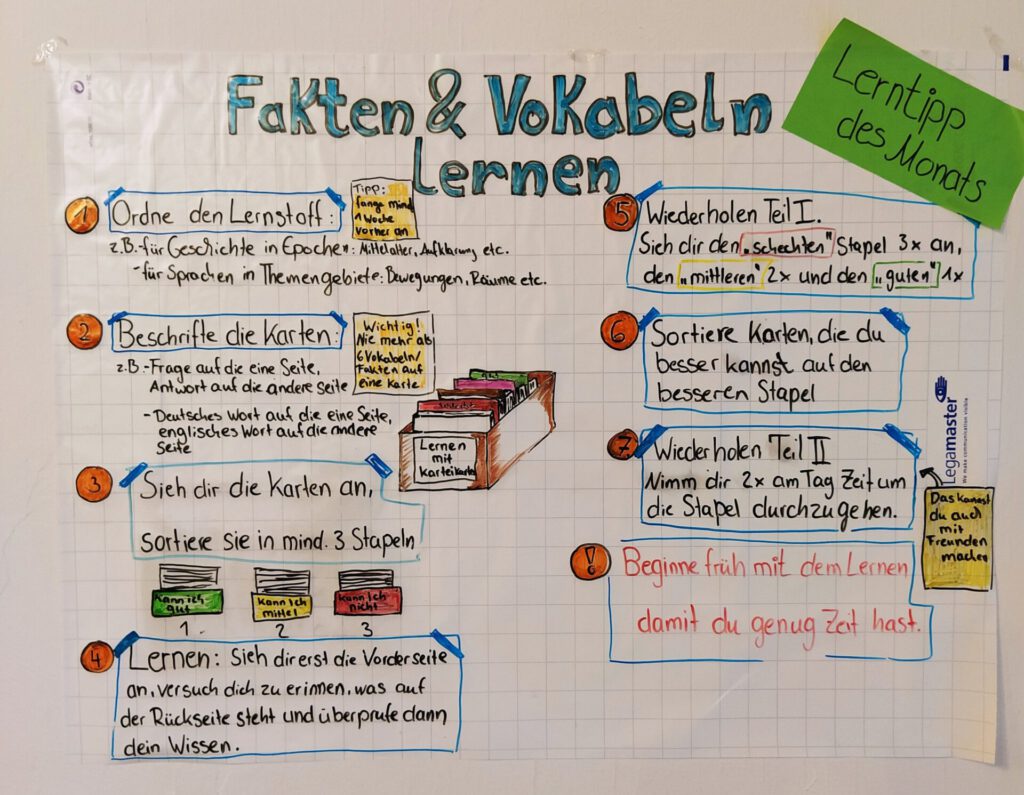 Fakten & Vokabeln
Lernen
Lerntipp
des Monats
1 Ordne den Lernstoff:
Tipp:
fange mind.
1 Woche
vorher an
z.B.-für Geschichte in Epochen: Mittelalter, Aufklärung etc.
-für Sprachen in Themengebiete: Bewegungen, Räume etc.
2 Beschrifte die Karten:
Wichtig!
Nie mehr als
6 Vokabeln/
Fakten auf
eine Karte
z.B.-Frage auf die eine Seite,
Antwort auf die andere Seite
-Deutsches Wort auf die eine Seite,
englisches Wort auf die andere
Seite
Lernen
mit
Karteikarten
3 Sieh dir die Karten an,
sortiere sie in mind. 3 Stapeln
Kann ich
gut
Kann ich
mittel
Kann ich
nicht
1.
2
3
4 Lernen: Sieh dir erst die Vorderseite
an, versuch dich zu erinnen, was auf
der Rückseite steht und überprüfe dann
dein Wissen.
5 Wiederholen Teil I.
Sieh dir den „schechten" Stapel 3x an,
den „mittleren" 2x und den „guten" 1x
6 Sortiere Karten, die du
besser kannst auf den
besseren Stapel
7 Wiederholen Teil II
Nimm dir 2x am Tag Zeit um
die Stapel durchzugehen.
Das kannst
du auch
mit
Freunden
machen
! Beginne früh mit dem Lernen
damit du genug Zeit hast.
Legamaster
We make communication visible